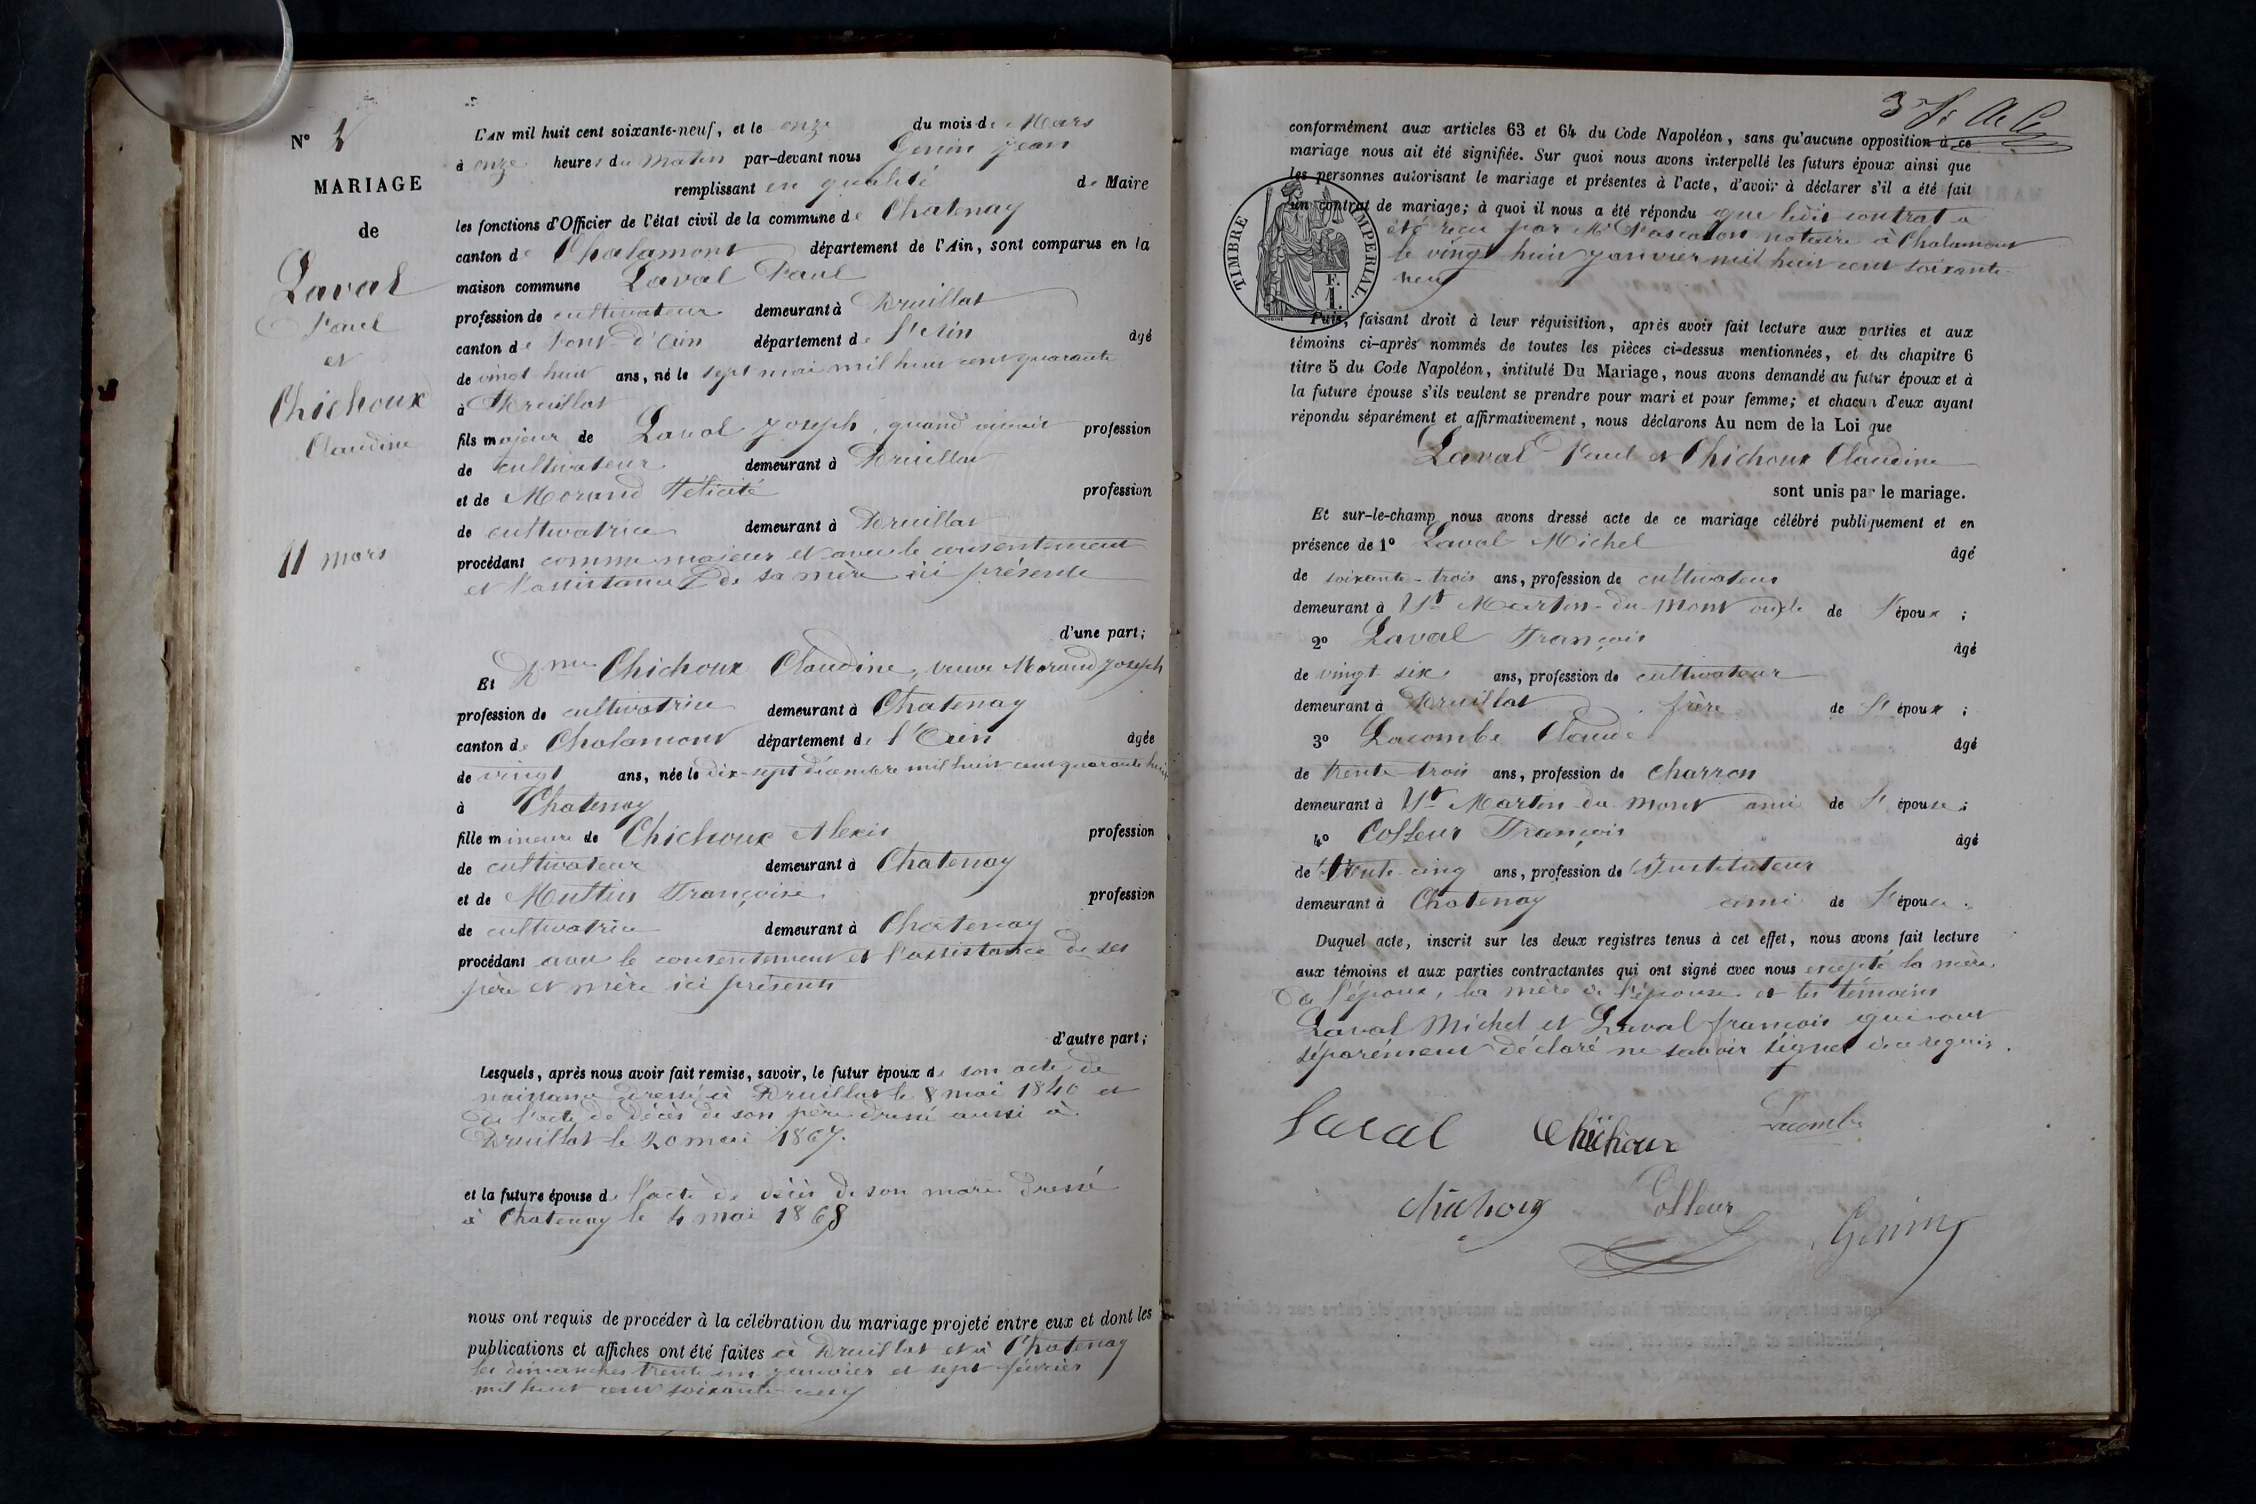 N° 2
MARIAGE
de
Laval
Paul
et
Chichoux
Claudine
11 mars
L'AN mil huit cent soixante-neuf, et le onze du mois de Mars
à onze heures du matin par-devant nous Genin Jean
remplissant en qualité de Maire
les fonctions d'Officier de l'état civil de la commune de Chatenay
canton de Chalamont département de l'Ain, sont comparus en la
maison commune Laval Paul
profession de cultivateur demeurant à Druillat
canton de Pont d'Ain département de l'Ain âgé
de vingt huit ans, né le sept mai mil huit cent quarante
à Druillat
fils majeur de Laval Joseph, quand vivait profession
de cultivateur demeurant à Druillat
et de Morand Félicité profession
de cultivatrice demeurant à Druillat
procédant comme majeur et avec le consentement
et l'assistance de sa mère ici présente
d'une part;
Et Dme Chichoux Claudine, veuve Morand Joseph
profession de cultivatrice demeurant à Chatenay
canton de Chalamont département de l'Ain âgée
de vingt ans, née le dix-sept décembre mil huit cent quarante huit
à Chatenay
fille mineure de Chichoux Alexis profession
de cultivateur demeurant à Chatenay
et de Muttin Françoise profession
de cultivatrice demeurant à Chatenay
procédant avec le consentement et l'assistance de ses
père et mère ici présents
d'autre part;
Lesquels, après nous avoir fait remise, savoir, le futur époux de son acte de
naissance dressé à Druillat le 8 mai 1840 et
de l'acte de décès de son père dressé aussi à
Druillat le 20 mai 1867.
et la future épouse de l'acte de décès de son mari dressé
à Chatenay le 4 mai 1868
nous ont requis de procéder à la célébration du mariage projeté entre eux et dont les
publications et affiches ont été faites à Druillat et à Chatenay
les dimanches trente un janvier et sept février
mil huit cent soixante neuf
3
conformément aux articles 63 et 64 du Code Napoléon, sans qu'aucune opposition à ce
mariage nous ait été signifiée. Sur quoi nous avons interpellé les futurs époux ainsi que
les personnes autorisant le mariage et présentes à l'acte, d'avoir à déclarer s'il a été fait
un contrat de mariage; à quoi il nous a été répondu que ledit contrat a
été reçu par Me Pascalon notaire à Chalamont
le vingt huit janvier mil huit cent soixante
neuf
TIMBRE IMPERIAL.
F.
1.
Puis, faisant droit à leur réquisition, après avoir fait lecture aux parties et aux
témoins ci-après nommés de toutes les pièces ci-dessus mentionnées, et du chapitre 6
titre 5 du Code Napoléon, intitulé Du Mariage, nous avons demandé au futur époux et à
la future épouse s'ils veulent se prendre pour mari et pour femme; et chacun d'eux ayant
répondu séparément et affirmativement, nous déclarons Au nom de la Loi que
Laval Paul et Chichoux Claudine
sont unis par le mariage.
Et sur-le-champ nous avons dressé acte de ce mariage célébré publiquement et en
présence de 1° Laval Michel âgé
de soixante-trois ans, profession de cultivateur
demeurant à St Martin-du-Mont oncle de l'époux ;
2° Laval François âgé
de vingt six ans, profession de cultivateur
demeurant à Druillat frère de l'époux ;
3° Lacombe Claude âgé
de trente trois ans, profession de charron
demeurant à St Martin du Mont ami de l'épouse ;
4° Colleur François âgé
de trente cinq ans, profession de Instituteur
demeurant à Chatenay ami de l'épouse.
Duquel acte, inscrit sur les deux registres tenus à cet effet, nous avons fait lecture
aux témoins et aux parties contractantes qui ont signé avec nous excepté la mère
de l'époux, la mère de l'épouse et les témoins
Laval Michel et Laval françois qui ont
séparément déclaré ne savoir signer de ce requis.
Laval Chichoux Lacombe
Chichoux Colleur Genin